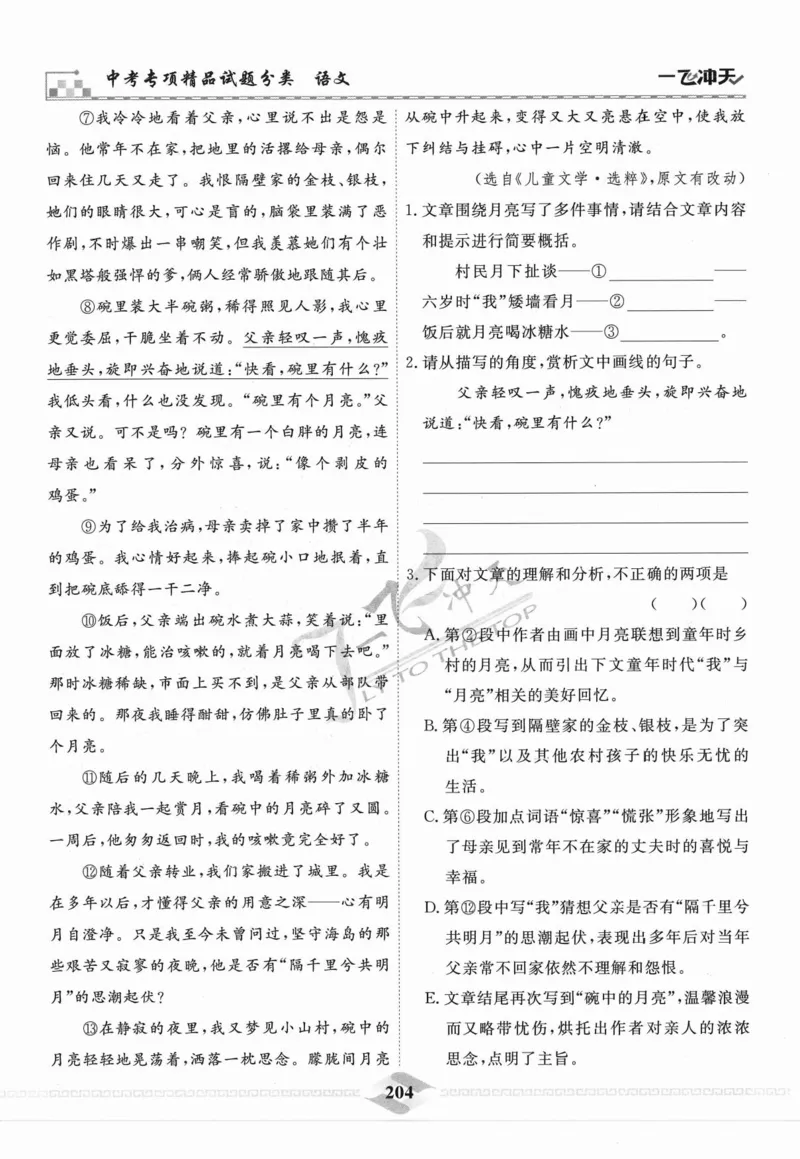 中考专项精品试题分类 语文
一飞冲天
⑦我冷冷地看着父亲,心里说不出是怨是
恼。他常年不在家,把地里的活撂给母亲,偶尔
回来住几天又走了。我恨隔壁家的金枝、银枝,
她们的眼睛很大,可心是盲的,脑袋里装满了恶
作剧,不时爆出一串嘲笑,但我羡慕她们有个壮
如黑塔般强悍的爹,俩人经常骄傲地跟随其后。
⑧碗里装大半碗粥,稀得照见人影,我心里
更觉委屈,干脆坐着不动。父亲轻叹一声,愧疚
地垂头,旋即兴奋地说道:“快看,碗里有什么?”
我低头看,什么也没发现。“碗里有个月亮。”父
亲又说。可不是吗?碗里有一个白胖的月亮,连
母亲也看呆了,分外惊喜,说:“像个剥皮的
鸡蛋。”
⑨为了给我治病,母亲卖掉了家中攒了半年
的鸡蛋。我心情好起来,捧起碗小口地抿着,直
到把碗底舔得一干二净。
⑩饭后,父亲端出碗水煮大蒜,笑着说:“里
面放了冰糖,能治咳嗽的,就着月亮喝下去吧。”
那时冰糖稀缺,市面上买不到,是父亲从部队带
回来的。那夜我睡得酣甜,仿佛肚子里真的卧了
个月亮。
⑪随后的几天晚上,我喝着稀粥外加冰糖
水,父亲陪我一起赏月,看碗中的月亮碎了又圆。
一周后,他匆匆返回时,我的咳嗽竟完全好了。
⑫随着父亲转业,我们家搬进了城里。我是
在多年以后,才懂得父亲的用意之深——心有明
月自澄净。只是我至今未曾问过,坚守海岛的那
些艰苦又寂寥的夜晚,他是否有“隔千里兮共明
月”的思潮起伏?
⑬在静寂的夜里,我又梦见小山村,碗中的
月亮轻轻地晃荡着,洒落一枕思念。朦胧间月亮
从碗中升起来,变得又大又亮悬在空中,使我放
下纠结与挂碍,心中一片空明清澈。
(选自《儿童文学·选粹》,原文有改动)
1.文章围绕月亮写了多件事情,请结合文章内容
和提示进行简要概括。
村民月下扯谈——①____________——
六岁时“我”矮墙看月——②____________——
饭后就月亮喝冰糖水——③____________。
2.请从描写的角度,赏析文中画线的句子。
父亲轻叹一声,愧疚地垂头,旋即兴奋地
说道:“快看,碗里有什么?”
3.下面对文章的理解和分析,不正确的两项是
( )( )
A.第②段中作者由画中月亮联想到童年时乡
村的月亮,从而引出下文童年时代“我”与
“月亮”相关的美好回忆。
B.第④段写到隔壁家的金枝、银枝,是为了突
出“我”以及其他农村孩子的快乐无忧的
生活。
C.第⑥段加点词语“惊喜”“慌张”形象地写出
了母亲见到常年不在家的丈夫时的喜悦与
幸福。
D.第⑫段中写“我”猜想父亲是否有“隔千里兮
共明月”的思潮起伏,表现出多年后对当年
父亲常不回家依然不理解和怨恨。
E.文章结尾再次写到“碗中的月亮”,温馨浪漫
而又略带忧伤,烘托出作者对亲人的浓浓
思念,点明了主旨。
飞冲天
FLY TO THE TOP
204